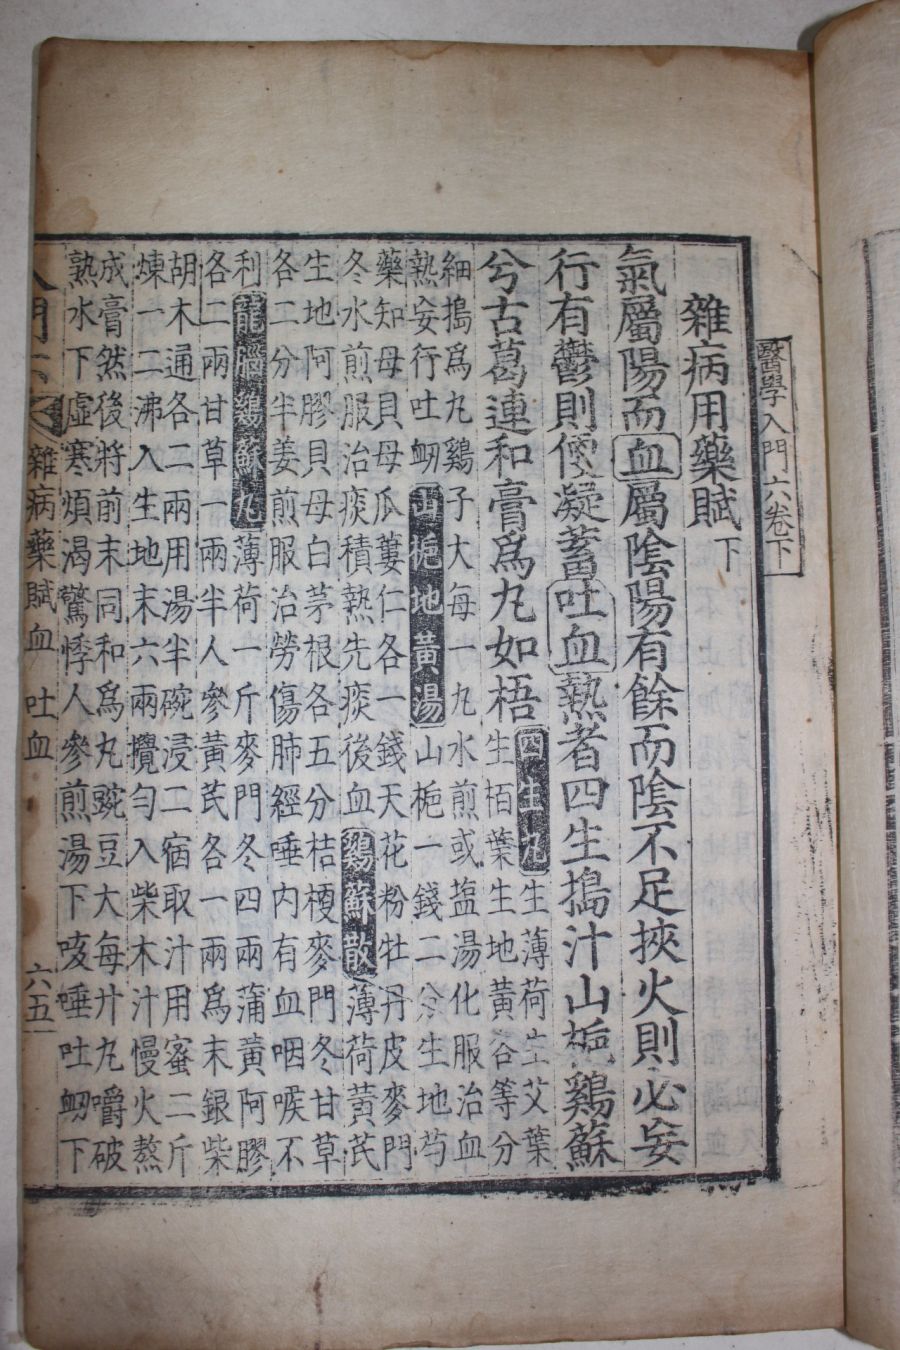 醫學入門六卷下
雜病用藥賦下
氣屬陽而血屬陰陽有餘而陰不足挾火則必妄
行有鬱則便凝蓄吐血熱者四生搗汁山梔鷄蘇
兮古葛連和膏爲丸如梧
四生丸生薄荷生艾葉
生栢葉生地黃各等分
細搗爲丸鷄子大每一丸水煎或盐湯化服治血
熱妄行吐衂山梔地黃湯山梔一錢二分生地芍
藥知母貝母瓜蔞仁各一錢天花粉牡丹皮麥門
冬水煎服治痰積熱先痰後血鷄蘇散薄荷黃芪
生地阿膠貝母白茅根各五分桔梗麥門冬甘草
各二分半姜煎服治勞傷肺經唾內有血咽喉不
利龍腦鷄蘇丸薄荷一斤麥門冬四兩蒲黃阿膠
各二兩甘草一兩半人參黃芪各一兩爲末銀柴
胡木通各二兩用湯半碗浸二宿取汁用蜜二斤
煉一二沸入生地末六兩攪勻入柴木汁慢火熬
成膏然後將前末同和爲丸豌豆大每廾丸嚼破
熟水下虛寒煩渴驚悸人參煎湯下咳唾吐衂下
入門六 雜病藥賦血 吐血 六五